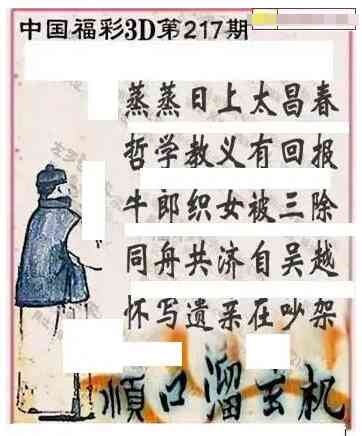 中国福彩3D第217期
蒸蒸日上太昌春
哲学教义有回报
牛郎织女被三除
同舟共济自吴越
怀写遗亲在吵架
顺口溜玄机